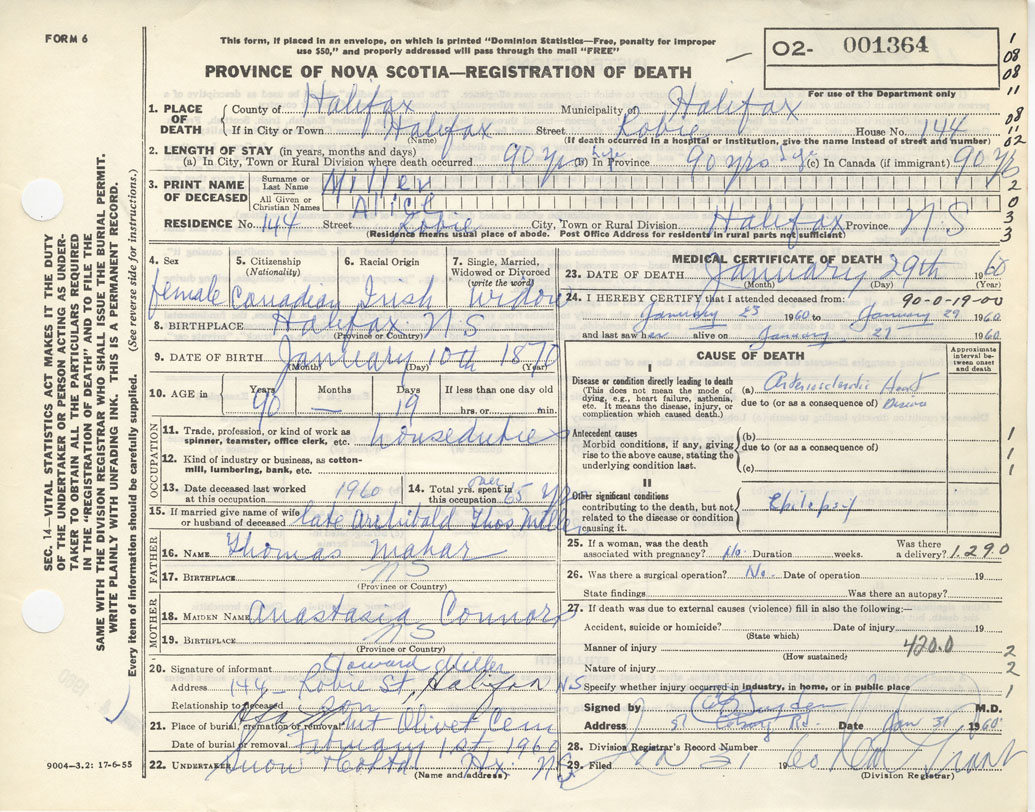 FORM 6
This form, if placed in an envelope, on which is printed "Dominion Statistics—Free, penalty for improper
use $50," and properly addressed will pass through the mail "FREE"
O2- 001364
PROVINCE OF NOVA SCOTIA—REGISTRATION OF DEATH
For use of the Department only
1. PLACE OF DEATH County of Halifax Municipality of Halifax
If in City or Town Halifax Street Robie House No. 144
(Name) (If death occurred in a hospital or institution, give the name instead of street and number)
2. LENGTH OF STAY (in years, months and days)
(a) In City, Town or Rural Division where death occurred 90 yrs (b) In Province 90 yrs (c) In Canada (if immigrant) 90 yrs
3. PRINT NAME OF DECEASED Surname or Last Name Miller
All Given or Christian Names Alice
RESIDENCE No. 144 Street Robie City, Town or Rural Division Halifax Province N S
(Residence means usual place of abode. Post Office Address for residents in rural parts not sufficient)
4. Sex female
5. Citizenship (Nationality) Canadian
6. Racial Origin Irish
7. Single, Married, Widowed or Divorced (write the word) Widow
8. BIRTHPLACE Halifax N S
(Province or Country)
9. DATE OF BIRTH January 10th 1870
(Month) (Day) (Year)
10. AGE in Years 90 Months — Days 19 If less than one day old hrs. or min.
OCCUPATION
11. Trade, profession, or kind of work as spinner, teamster, office clerk, etc. houseduties
12. Kind of industry or business, as cotton-mill, lumbering, bank, etc.
13. Date deceased last worked at this occupation 1960
14. Total yrs. spent in this occupation over 65 yrs
15. If married give name of wife or husband of deceased late Archibald Thos Miller
FATHER
16. NAME Thomas Mahar
17. BIRTHPLACE N S
(Province or Country)
MOTHER
18. MAIDEN NAME Anastasia Connors
19. BIRTHPLACE N S
(Province or Country)
20. Signature of informant Howard Miller
Address 144 Robie St, Halifax N S
Relationship to deceased son
21. Place of burial, cremation or removal Mt Olivet Cem
Date of burial or removal February 1st 1960
22. UNDERTAKER Snow Hx. N S
(Name and address)
MEDICAL CERTIFICATE OF DEATH
23. DATE OF DEATH January 29th 1960
(Month) (Day) (Year)
24. I HEREBY CERTIFY that I attended deceased from: 90-0-19-00
January 23 1960 to January 29 1960
and last saw her alive on January 27 1960
CAUSE OF DEATH
Approximate interval between onset and death
I
Disease or condition directly leading to death
(This does not mean the mode of dying, e.g., heart failure, asthenia, etc. It means the disease, injury, or complication which caused death.)
(a) Arteriosclerotic Heart Disease
due to (or as a consequence of)
Antecedent causes
Morbid conditions, if any, giving rise to the above cause, stating the underlying condition last.
(b)
due to (or as a consequence of)
(c)
II
Other significant conditions contributing to the death, but not related to the disease or condition causing it.
Epilepsy
25. If a woman, was the death associated with pregnancy? No. Duration weeks. Was there a delivery? 1.290
26. Was there a surgical operation? No. Date of operation 19
State findings Was there an autopsy?
27. If death was due to external causes (violence) fill in also the following:—
Accident, suicide or homicide? Date of injury 19
(State which)
Manner of injury 420.0
(How sustained)
Nature of injury
Specify whether injury occurred in industry, in home, or in public place
Signed by M.D.
Address Rd. Date Jan 31 1960
28. Division Registrar's Record Number
29. Filed Jan 31 1960
(Division Registrar)
SEC. 14—VITAL STATISTICS ACT MAKES IT THE DUTY
OF THE UNDERTAKER OR PERSON ACTING AS UNDER-
TAKER TO OBTAIN ALL THE PARTICULARS REQUIRED
IN THE "REGISTRATION OF DEATH" AND TO FILE THE
SAME WITH THE DIVISION REGISTRAR WHO SHALL ISSUE THE BURIAL PERMIT.
WRITE PLAINLY WITH UNFADING INK. THIS IS A PERMANENT RECORD.
Every item of information should be carefully supplied. (See reverse side for instructions.)
9004—3.2: 17-6-55
1
08
08
11
08
11
02
2
0
3
3
1
1
1
2
2
1